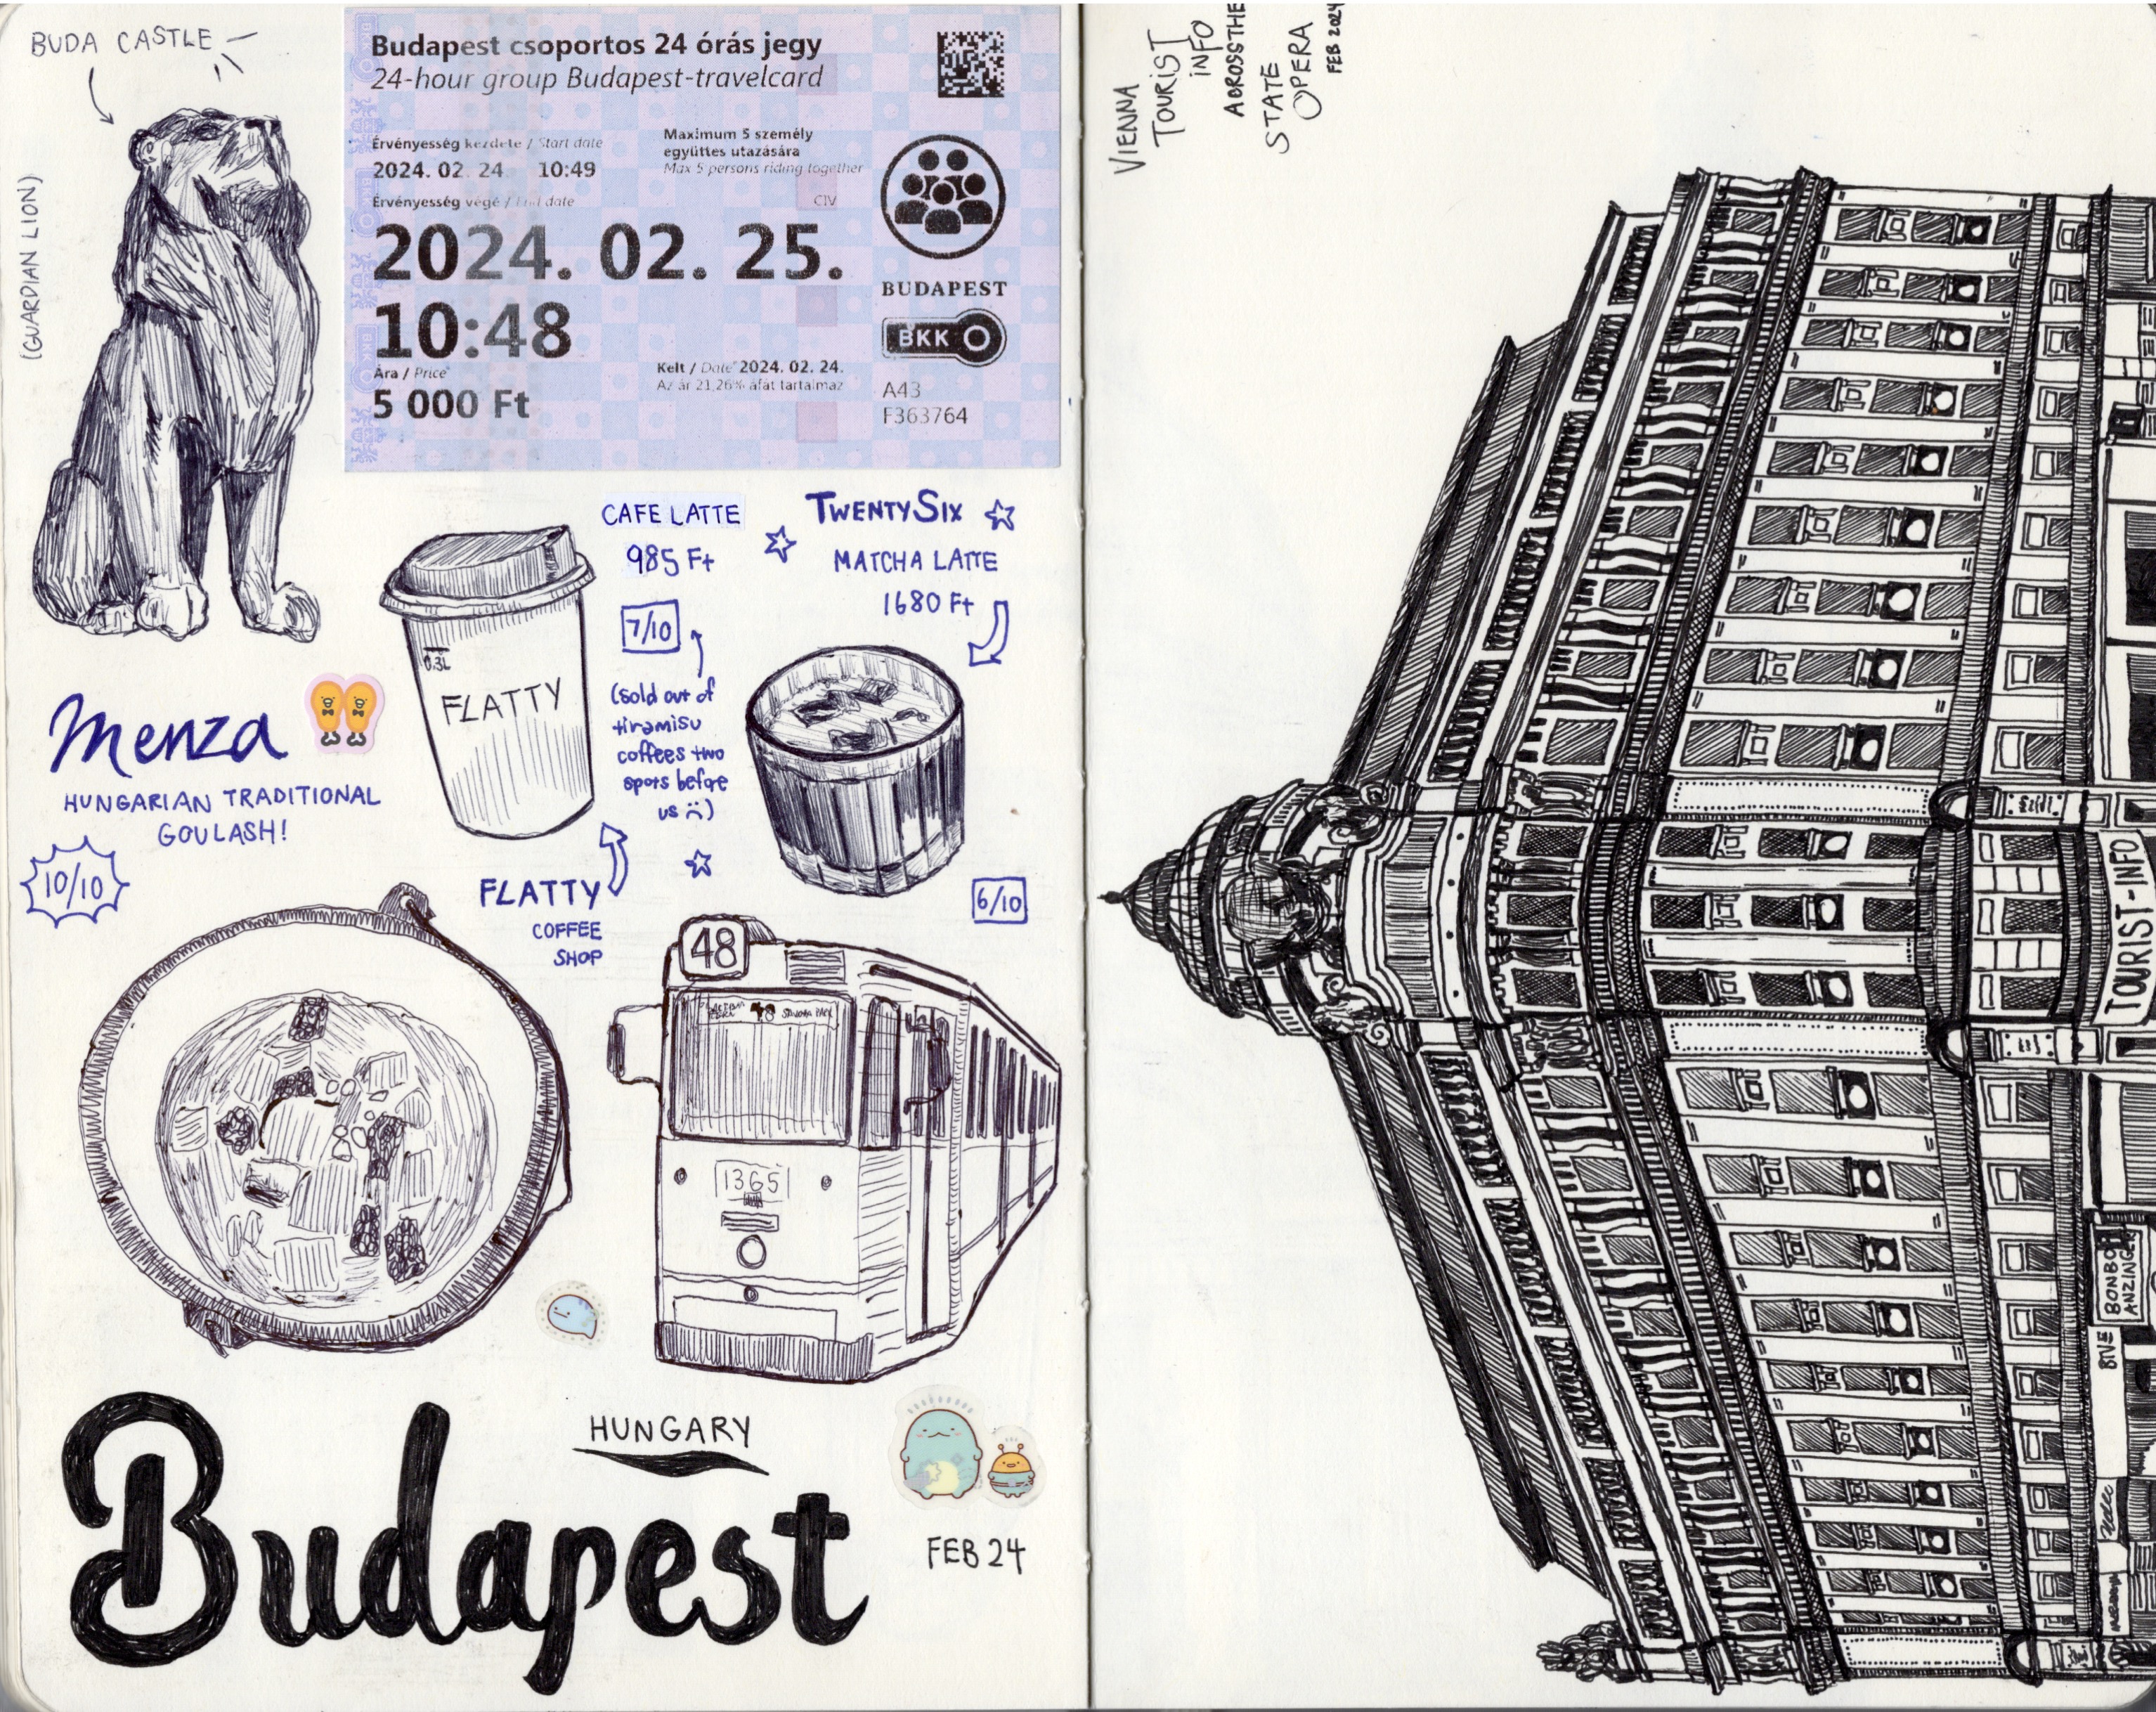 BUDA CASTLE
(GUARDIAN LION)
Budapest csoportos 24 órás jegy
24-hour group Budapest-travelcard
Érvényesség kezdete / Start date
2024. 02. 24. 10:49
Maximum 5 személy
együttes utazására
Max 5 persons riding together
Érvényesség végé / End date
CIV
2024. 02. 25.
10:48
BUDAPEST
BKK
Ára / Price
5 000 Ft
Kelt / Date 2024. 02. 24.
Az ár 21,26% áfát tartalmaz
A43
F363764
CAFE LATTE
985 Ft
7/10
(sold out of
tiramisu
coffees two
spots before
us :()
TWENTYSIX
MATCHA LATTE
1680 Ft
6/10
0.3L
FLATTY
FLATTY
COFFEE
SHOP
Menza
HUNGARIAN TRADITIONAL
GOULASH!
10/10
48
1365
HUNGARY
Budapest
FEB 24
VIENNA
TOURIST
INFO
ACROSS THE
STATE
OPERA
FEB 2024
TOURIST-INFO
BONBO
ANZINGER